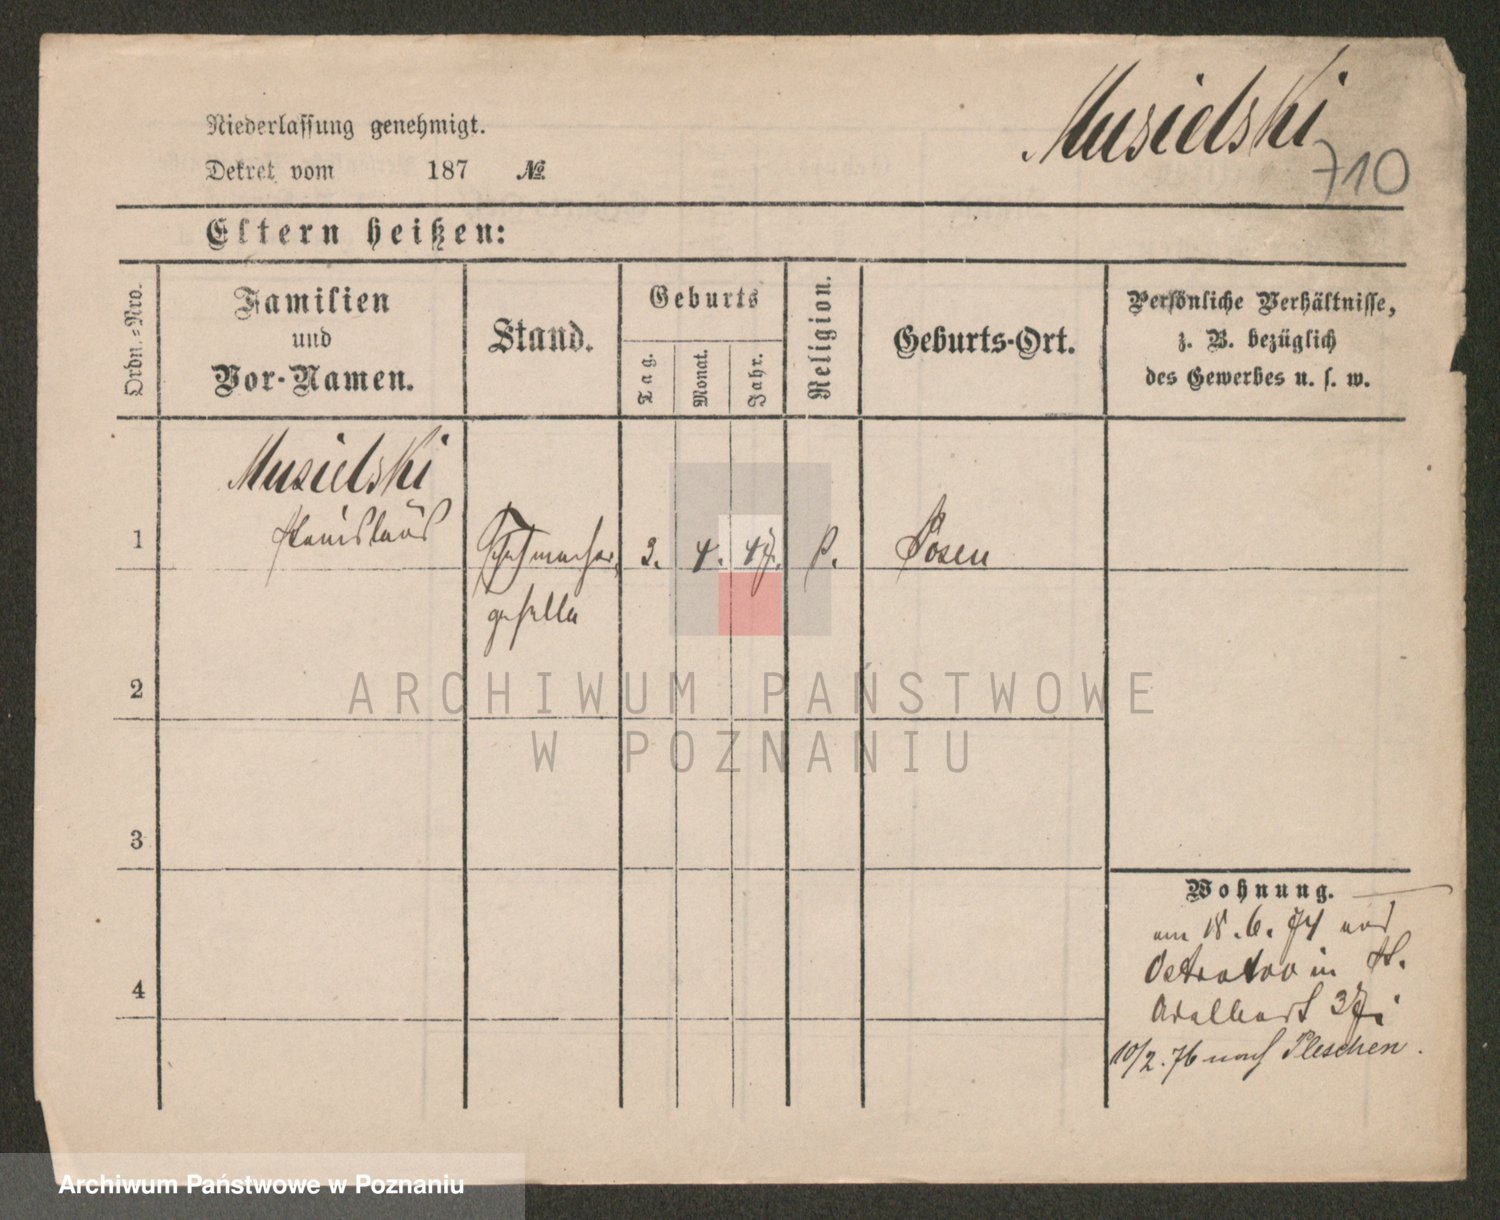 Musielski
710
Niederlassung genehmigt.
Dekret vom 187 №
Eltern heißen:
Ordn.-Nro.
Familien
und
Vor-Namen.
Stand.
Geburts
Tag.
Monat.
Jahr.
Religion.
Geburts-Ort.
Persönliche Verhältnisse,
z. B. bezüglich
des Gewerbes u. s. w.
Musielski
Stanislaus
1
Schuhmacher
geselle
3. 4. 47.
Posen
2
3
4
Wohnung.
am 18.6.74 aus
in St.
Adalbert 37;
10/2.76 nach Pleschen.
ARCHIWUM PAŃSTWOWE
W POZNANIU
Archiwum Państwowe w Poznaniu